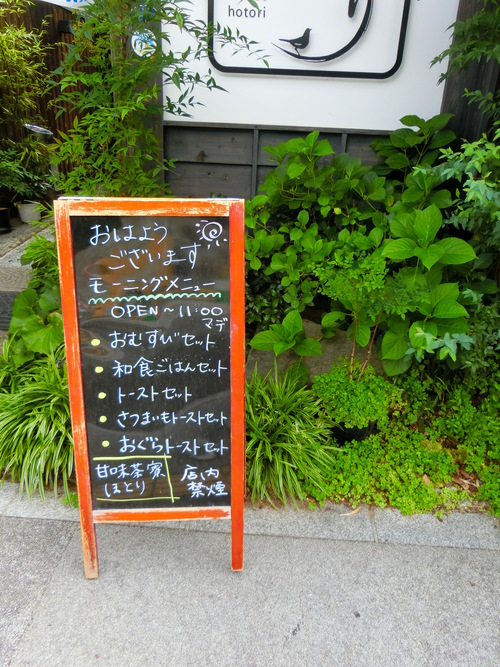 hotori
おはよう
ございます
モーニングメニュー
OPEN～11:00
マデ
・おむすびセット
・和食ごはんセット
・トーストセット
・さつまいもトーストセット
・おぐらトーストセット
甘味茶家
ほとり
店内
禁煙